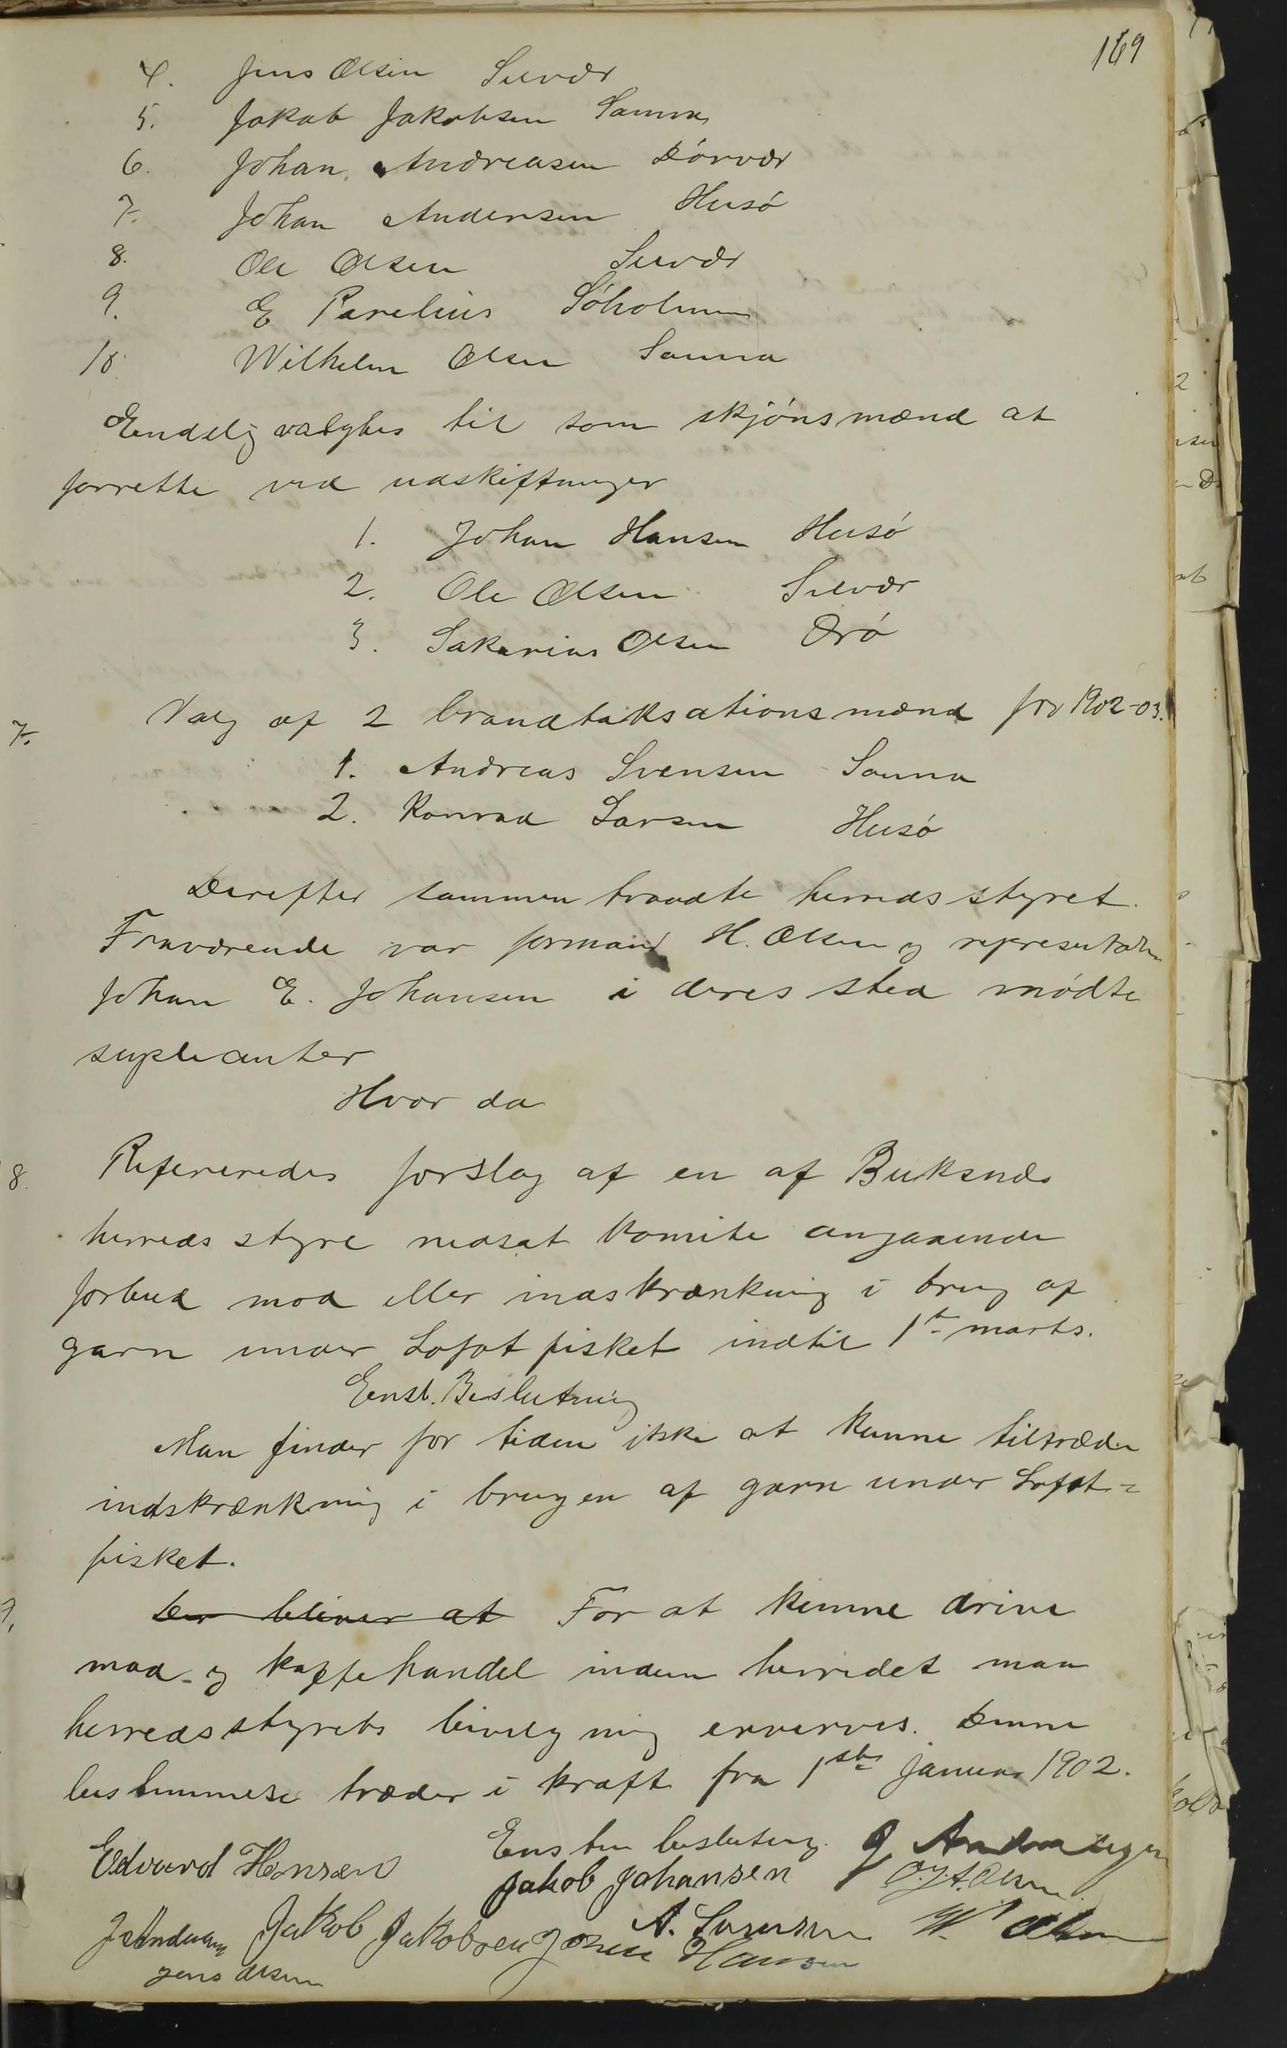 169
4. Jens Olsen Selvær
5. Jakob Jakobsen Sanna
6. Johan Andreasen Dørvær
7. Johan Andersen Husø
8. Ole Olsen Selvær
9. E Parelius Søholmen
10 Wilhelm Olsen Sanna
Eendelig valgtes til som skjønsmænd at
forrette ved udskiftninger
1. Johan Hansen Husø
2. Ole Olsen Selvær
3. Sakarias Olsen Ørø
7. Valg af 2 brandtaksationsmænd for 1902-03.
1. Andreas Svensen Sanna
2. Konrad Larsen Husø
Derefter sammentraadte herredsstyret.
Fraværende var formand H. Olsen og representanten
Johan E. Johansen i deres sted mødte
supleanter
Hvor da
8. Refereredes forslag af en af Buksnæs
herredsstyre nedsat komite angaaende
forbud mod eller indskrænkning i brug af
garn under Lofotfisket indtil 1ste marts.
Enst. Beslutning
Man finder for tiden ikke at kunne tiltræde
indskrænkning i brugen af garn under Lofot-
fisket.
9. Der bliver at For at kunne drive
mad- og kaffehandel inden herredet maa
herredsstyrets bevilgning erverves. Denne
bestemmelse træder i kraft fra 1ste januar 1902.
Enstem beslutning.
Edvard Hansen Jakob Johansen O. J. A. Olsen
J Andersen Jakob Jakobsen Johan Hansen A. Svensen W. Olsen
Jens Olsen